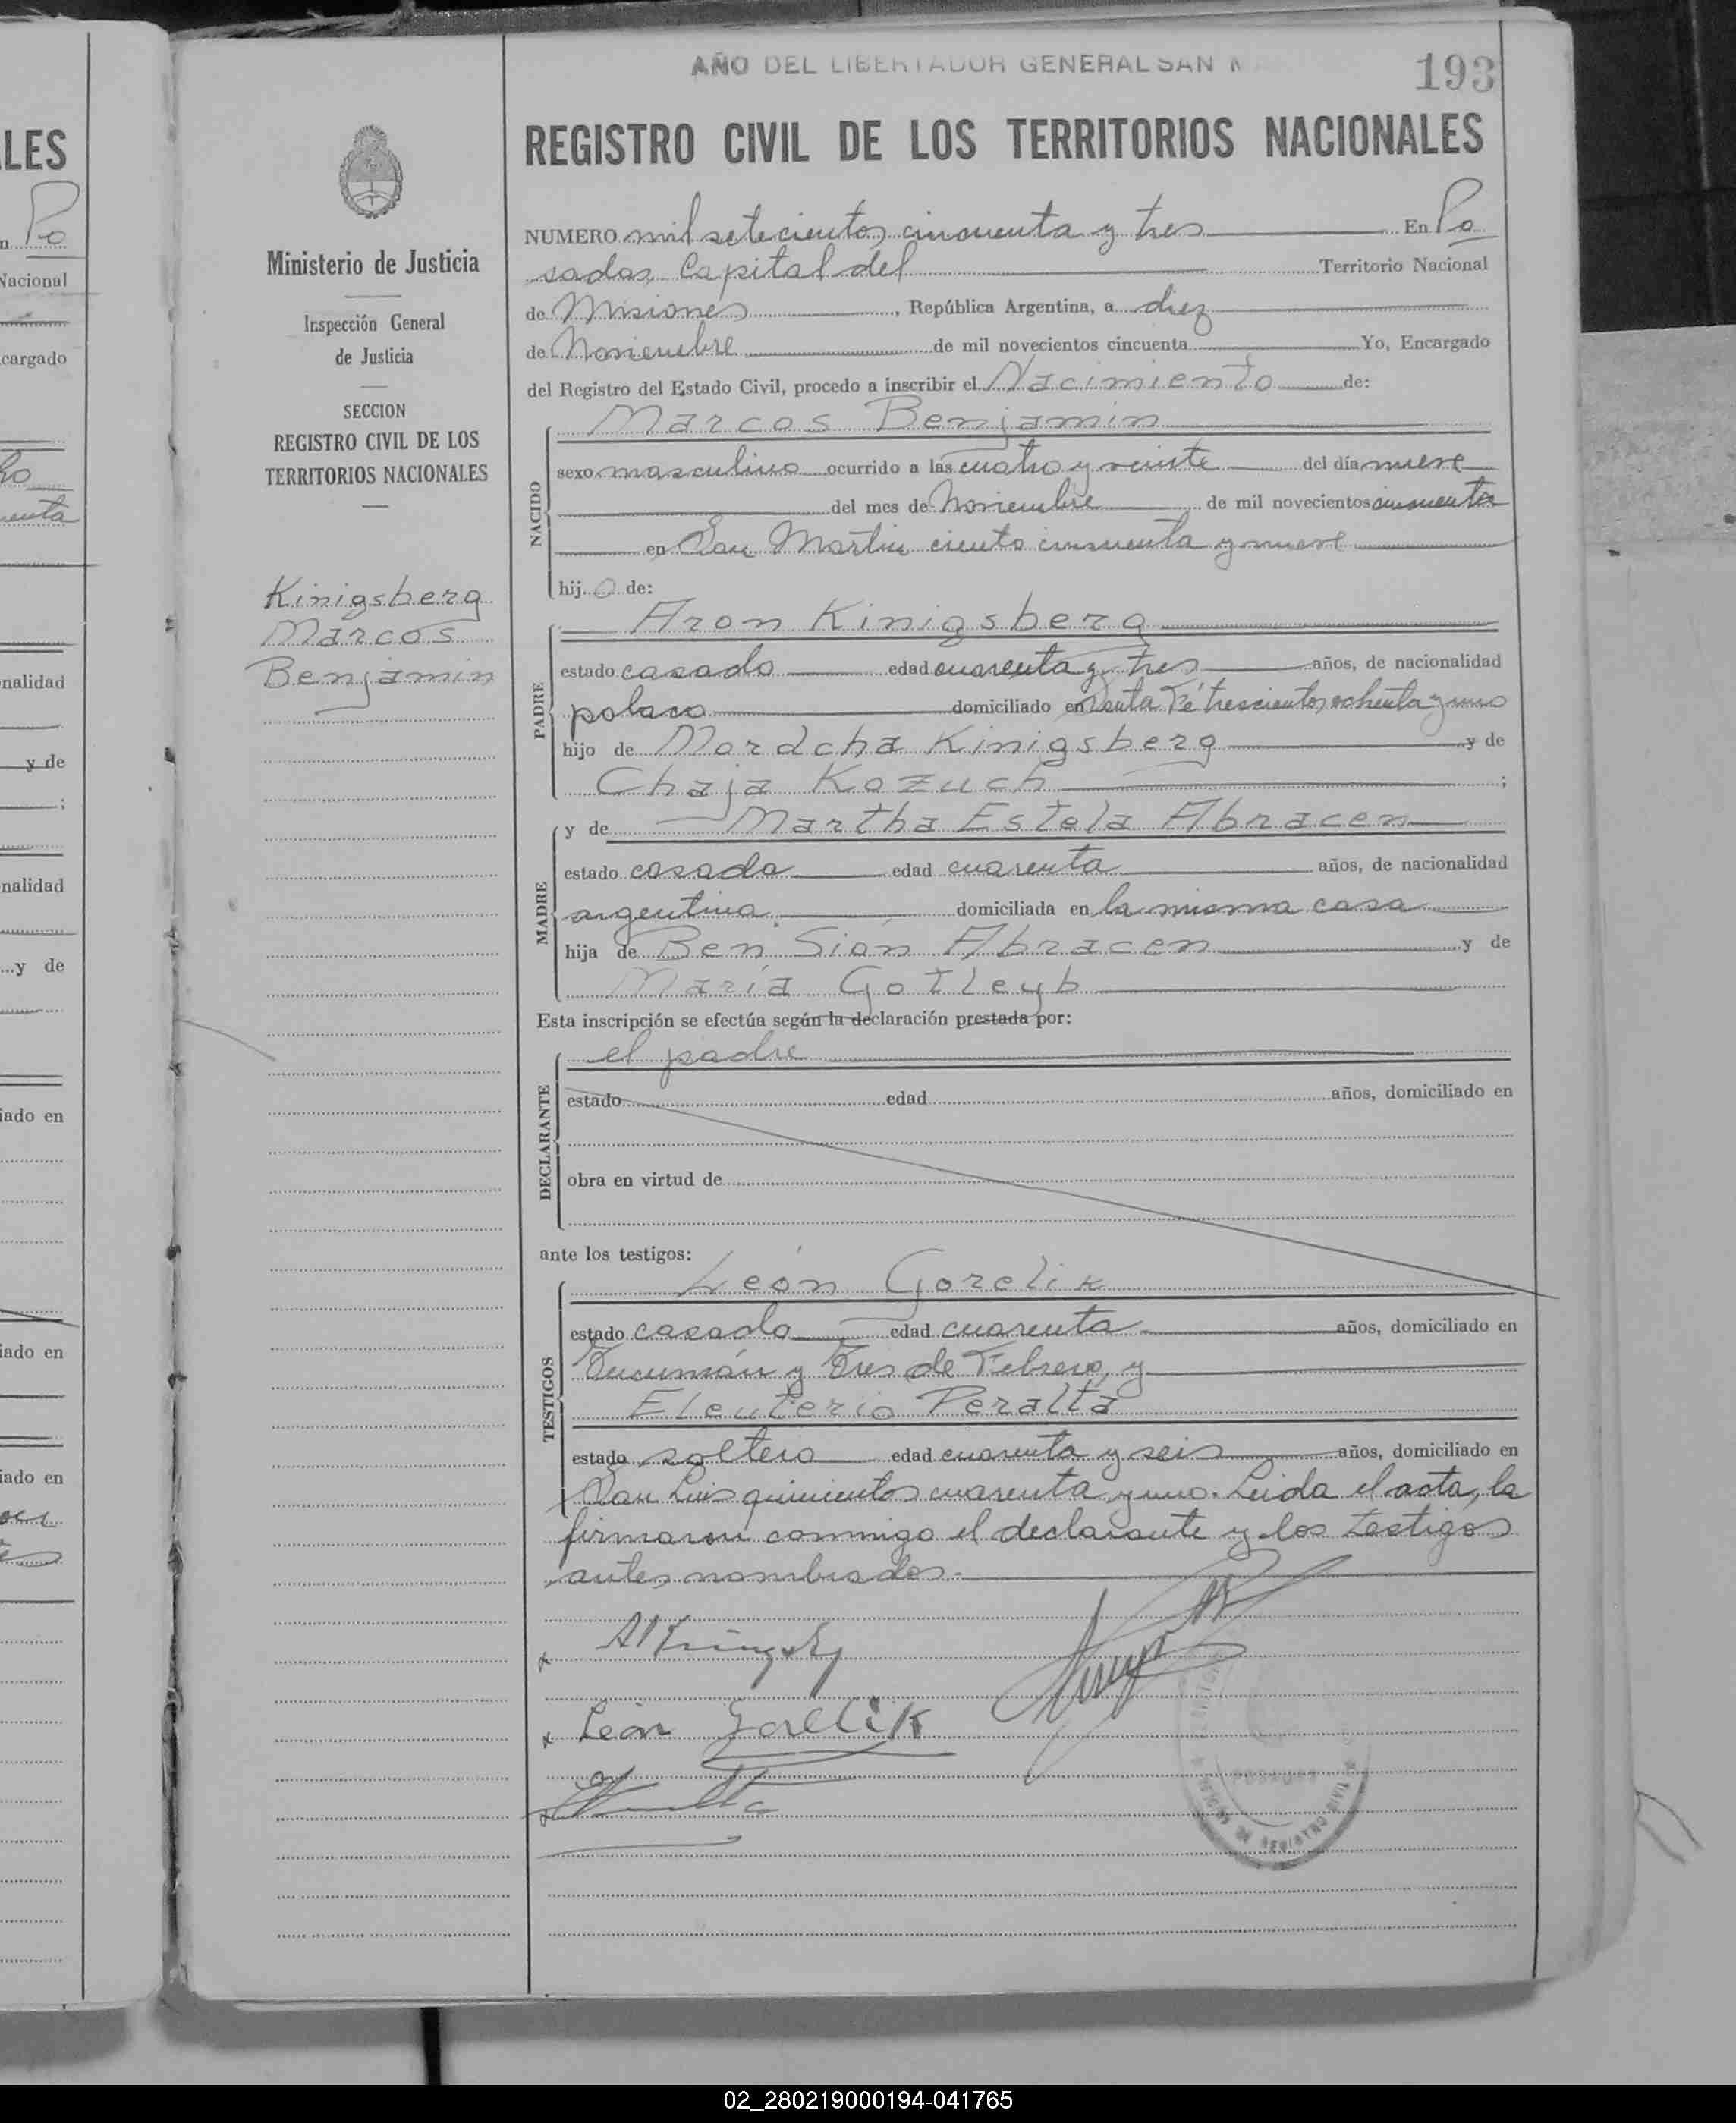 AÑO DEL LIBERTADOR GENERAL SAN M
193
REGISTRO CIVIL DE LOS TERRITORIOS NACIONALES
Ministerio de Justicia
Inspección General
de Justicia
SECCION
REGISTRO CIVIL DE LOS
TERRITORIOS NACIONALES
Kinigsberg
Marcos
Benjamin
NUMERO mil setecientos cincuenta y tres En Po
sadas, Capital del Territorio Nacional
de Misiones, República Argentina, a diez
de Noviembre de mil novecientos cincuenta Yo, Encargado
del Registro del Estado Civil, procedo a inscribir el Nacimiento de:
Marcos Benjamin
NACIDO
sexo masculino ocurrido a las cuatro y veinte del día nueve
del mes de Noviembre de mil novecientos cincuenta
en San Martin ciento cincuenta y nueve
hij o de:
Aron Kinigsberg
PADRE
estado casado edad cuarenta y tres años, de nacionalidad
polaco domiciliado en Santa Fé trescientos ochenta y uno
hijo de Mordcha Kinigsberg y de
Chaja Kozuch ;
y de Martha Estela Abracen
MADRE
estado casada edad cuarenta años, de nacionalidad
argentina domiciliada en la misma casa
hija de Ben Sión Abracen y de
María Gotleyb
Esta inscripción se efectúa según la declaración prestada por:
el padre
DECLARANTE
estado edad años, domiciliado en
obra en virtud de
ante los testigos:
León Gorelik
TESTIGOS
estado casado edad cuarenta años, domiciliado en
Tucumán y Tres de Febrero, y
Eleuterio Peralta
estado soltero edad cuarenta y seis años, domiciliado en
San Luis quinientos cuarenta y uno. Leida el acta, la
firmaron conmigo el declarante y los testigos
antes nombrados.
León Gorelik
POSADAS
DE REGISTRO CIVIL
LES
n Po
Nacional
cargado
nalidad
y de
;
nalidad
y de
iado en
iado en
iado en
02_280219000194-041765